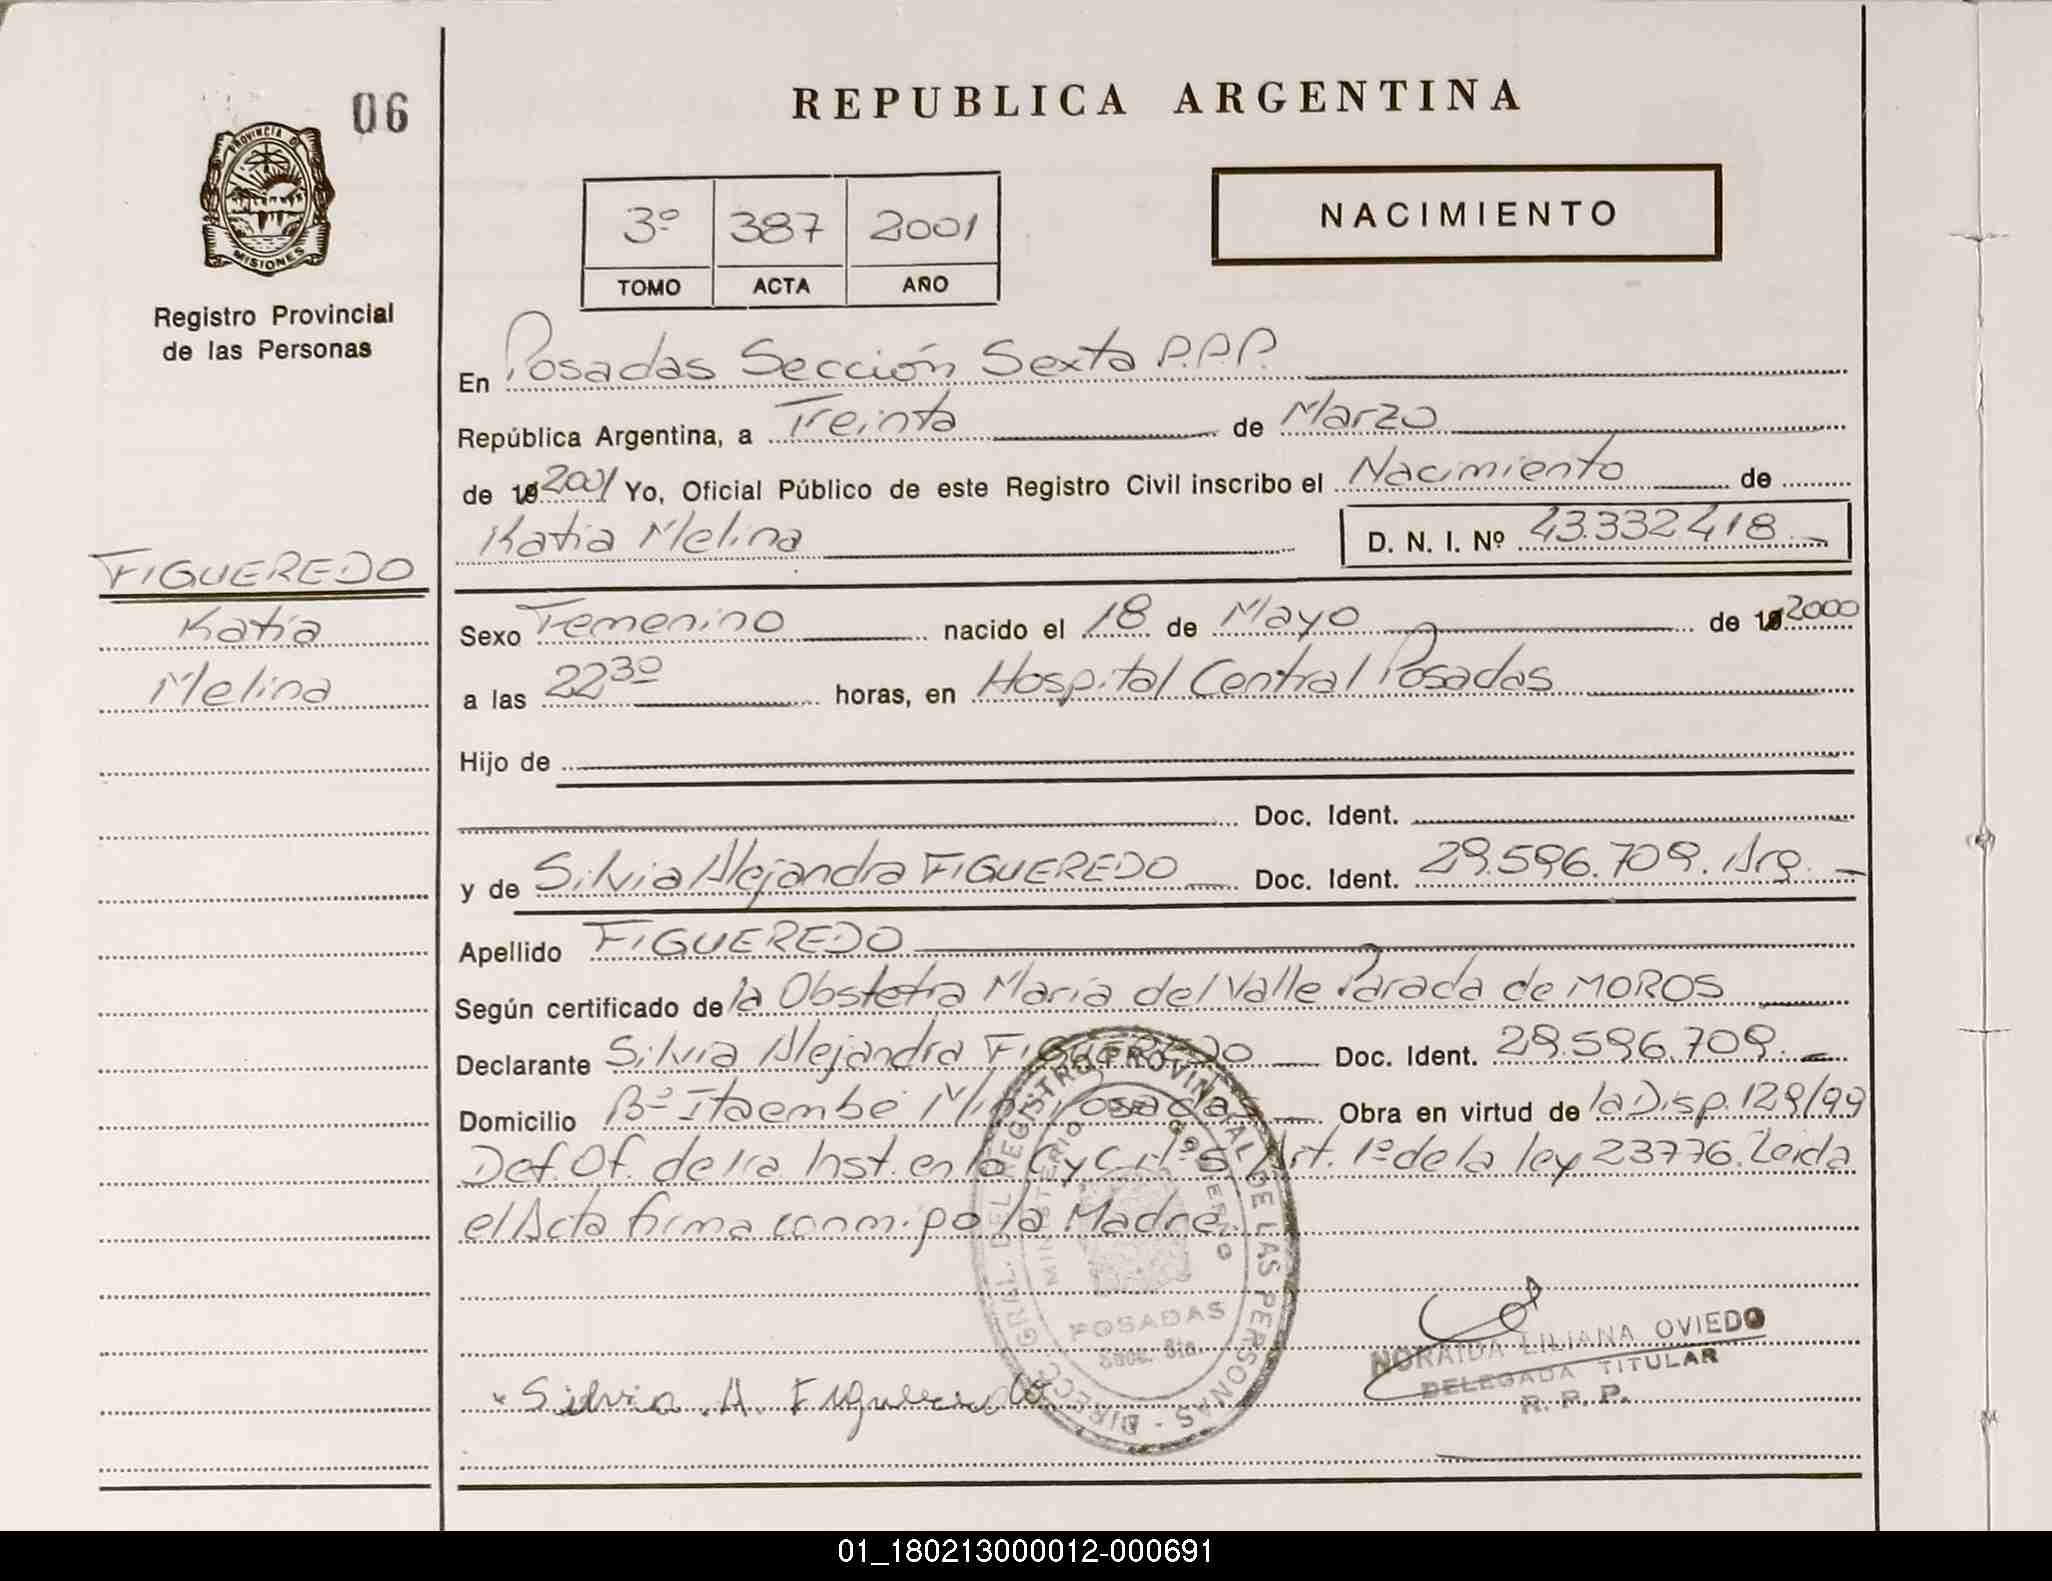 06
PROVINCIA DE
MISIONES
Registro Provincial
de las Personas
FIGUEREDO
Katia
Melina
REPUBLICA ARGENTINA
3º 387 2001
TOMO ACTA AÑO
NACIMIENTO
En Posadas Sección Sexta P.P.P.
República Argentina, a Treinta de Marzo
de 19 2001 Yo, Oficial Público de este Registro Civil inscribo el Nacimiento de
Katia Melina D. N. I. Nº 43.332.418
Sexo Femenino nacido el 18 de Mayo de 19 2000
a las 22 30 horas, en Hospital Central Posadas
Hijo de
Doc. Ident.
y de Silvia Alejandra FIGUEREDO Doc. Ident. 29.596.709. Arg.
Apellido FIGUEREDO
Según certificado de la Obstetra María del Valle Parada de MOROS
Declarante Silvia Alejandra FIGUEREDO Doc. Ident. 29.596.709.
Domicilio Bº Itaembé Mini Posadas Obra en virtud de la Disp. 129/99
Def. Of. de 1ra Inst. en lo C y C Nº 5 Art. 1º de la ley 23776. Leida
el Acta firma conmigo la Madre.
DIRECC. GRAL. DEL REGISTRO PROVINCIAL DE LAS PERSONAS
MINISTERIO DE GOBIERNO
POSADAS
Secc. 6ta.
NORAIDA LILIANA OVIEDO
DELEGADA TITULAR
R. P. P.
Silvia . A. Figueredo
01_180213000012-000691